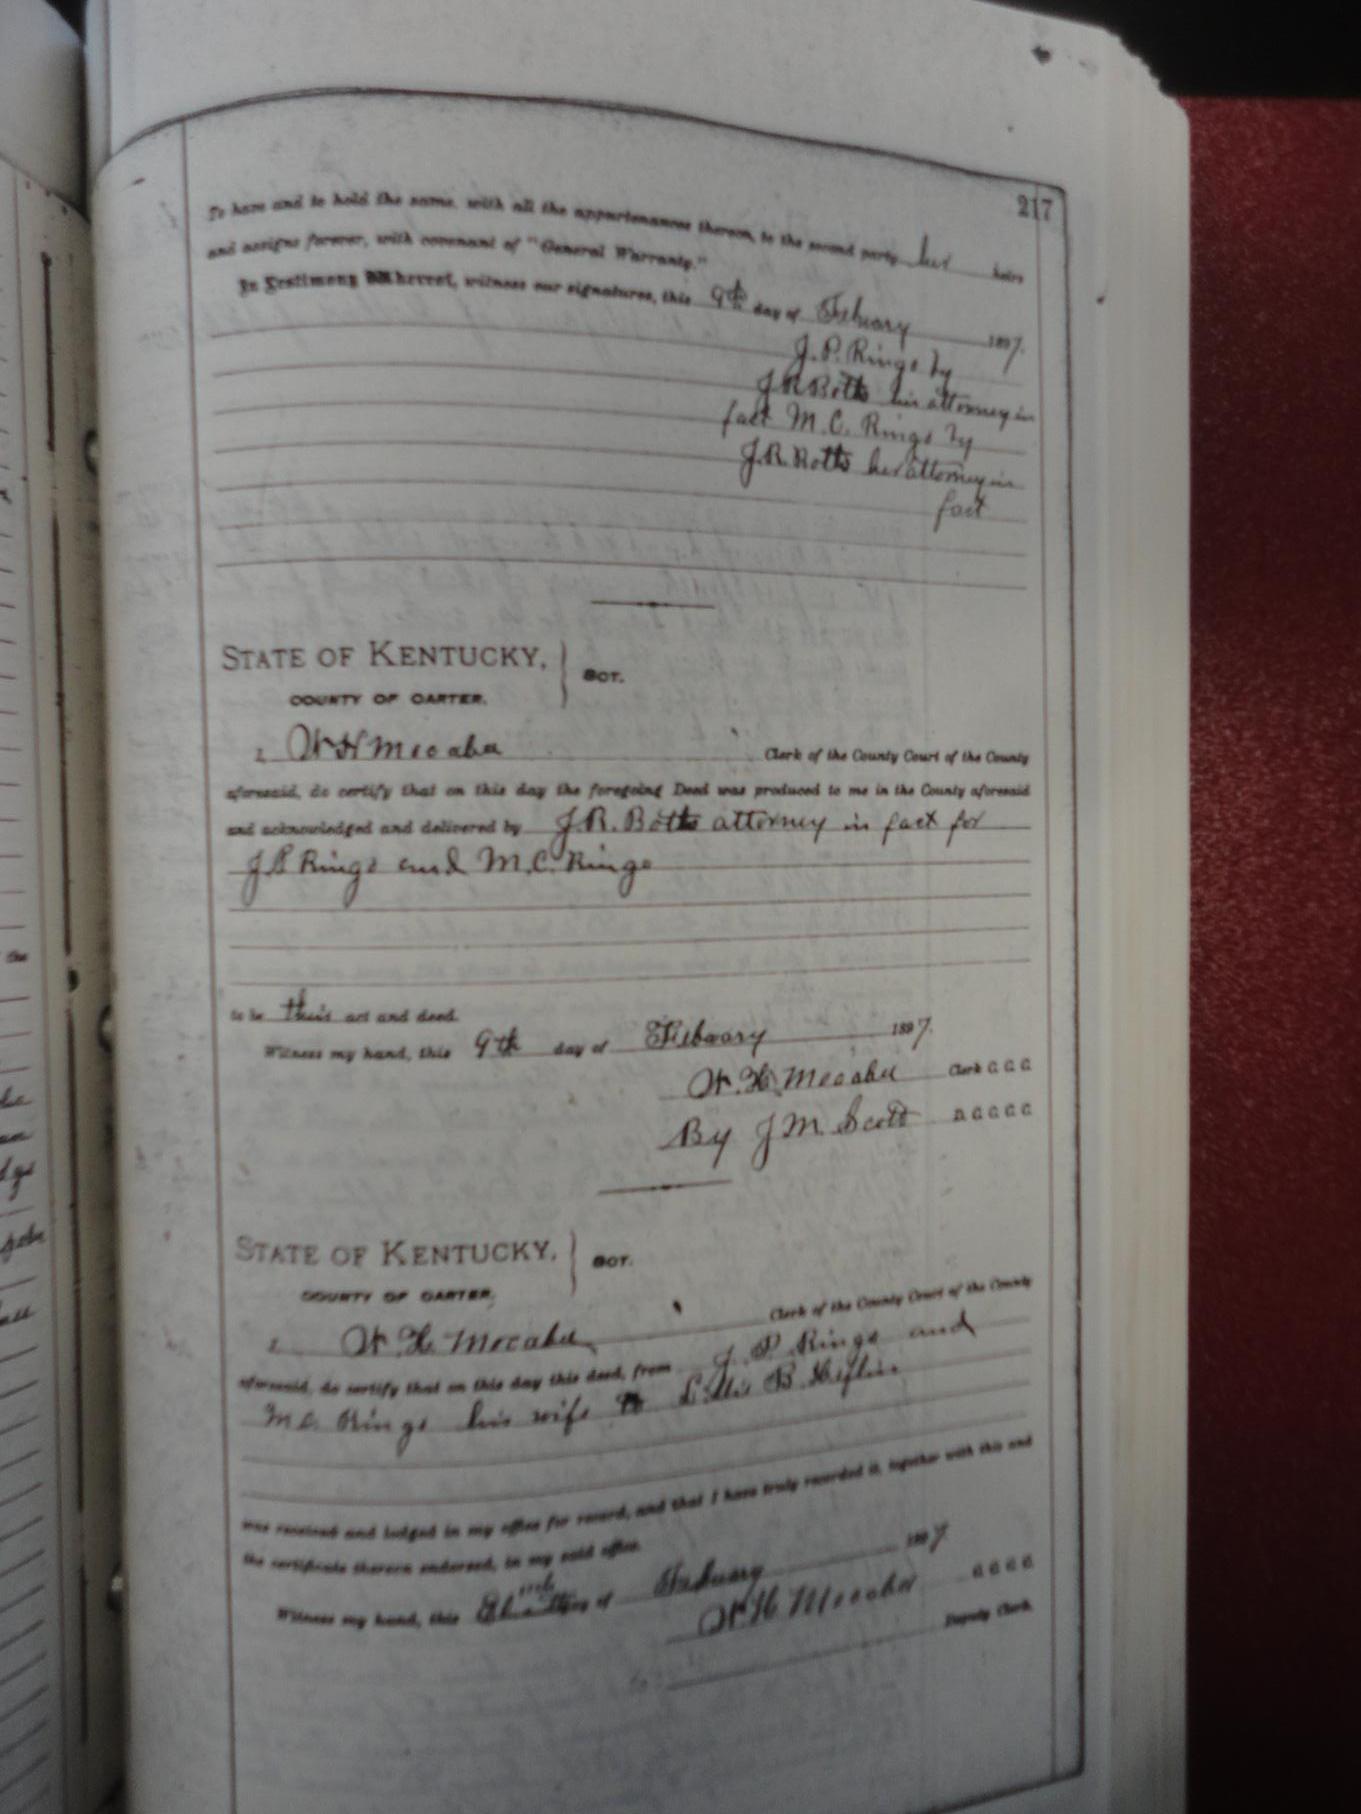 217
To have and to hold the same, with all the appurtenances thereon, to the second party her heirs
and assigns forever, with covenant of "General Warranty."
In Testimony Whereof, witness our signatures, this 9th day of Febuary 1897.
J. P. Ringo by
J R Botts his attorney in
fact M. C. Ringo by
J. R. Botts her attorney in
fact
STATE OF KENTUCKY,
COUNTY OF CARTER.
SCT.
I, W H Mocabee Clerk of the County Court of the County
aforesaid, do certify that on this day the foregoing Deed was produced to me in the County aforesaid
and acknowledged and delivered by J. R. Botts attorney in fact for
J P Ringo and M. C. Ringo
to be their act and deed.
Witness my hand, this 9th day of Febuary 1897.
W. H. Mocabee Clerk C C C
By J M. Scott D C C C C
STATE OF KENTUCKY,
COUNTY OF CARTER,
SCT.
I, W. H. Mocabee Clerk of the County Court of the County
aforesaid, do certify that on this day this deed, from J. P. Ringo and
M C. Ringo his wife to B. Heflin
was received and lodged in my office for record, and that I have truly recorded it, together with this and
the certificate thereon endorsed, in my said office.
Witness my hand, this day of Febuary 1897
W H Mocabee C C C C
Deputy Clerk.